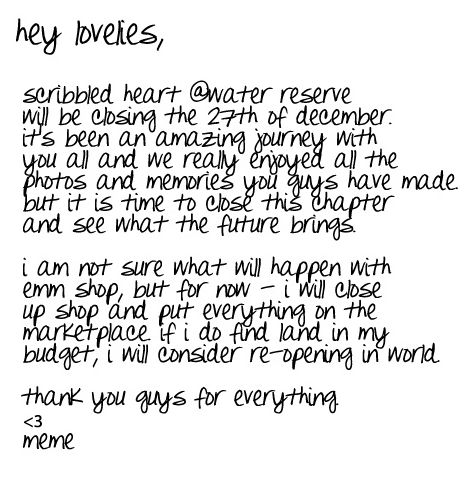 hey lovelies,
scribbled heart @water reserve
will be closing the 27th of december.
it's been an amazing journey with
you all and we really enjoyed all the
photos and memories you guys have made.
but it is time to close this chapter
and see what the future brings.
i am not sure what will happen with
emm shop, but for now - i will close
up shop and put everything on the
marketplace. if i do find land in my
budget, i will consider re-opening in world.
thank you guys for everything.
<3
meme